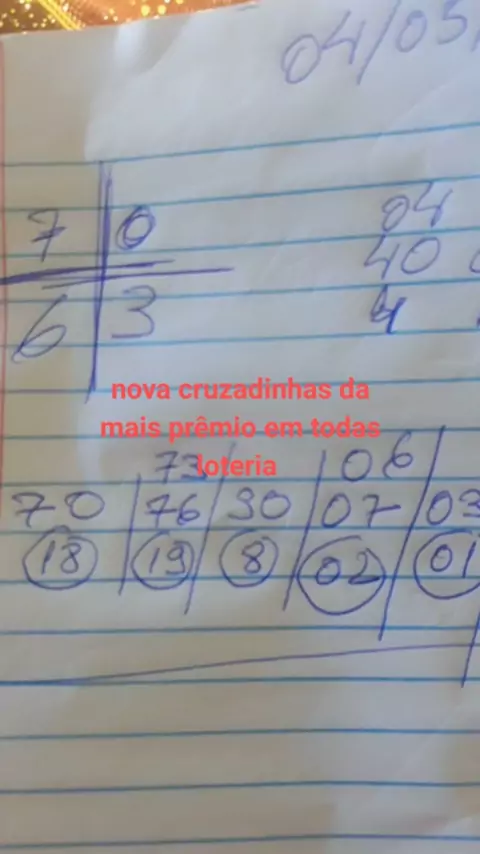 04/03
7 0
04
40
6 3
4
nova cruzadinhas da
mais prêmio em todas
loteria
73 06
70 76 30 07 03
18 19 8 02 01